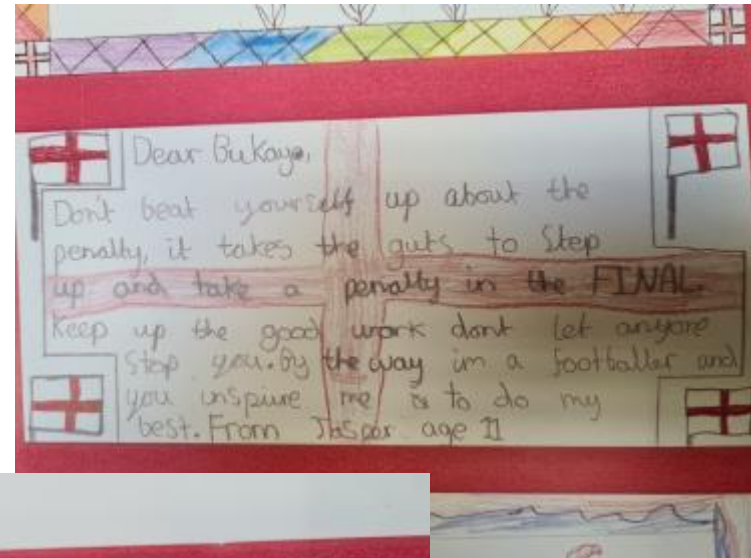 Dear Bukayo,
Don't beat yourself up about the
penalty, it takes the guts to Step
up and take a penalty in the FINAL.
Keep up the good work dont let anyone
stop you. By the way im a footballer and
you inspiure me to do my
best. From Jaspar age 11